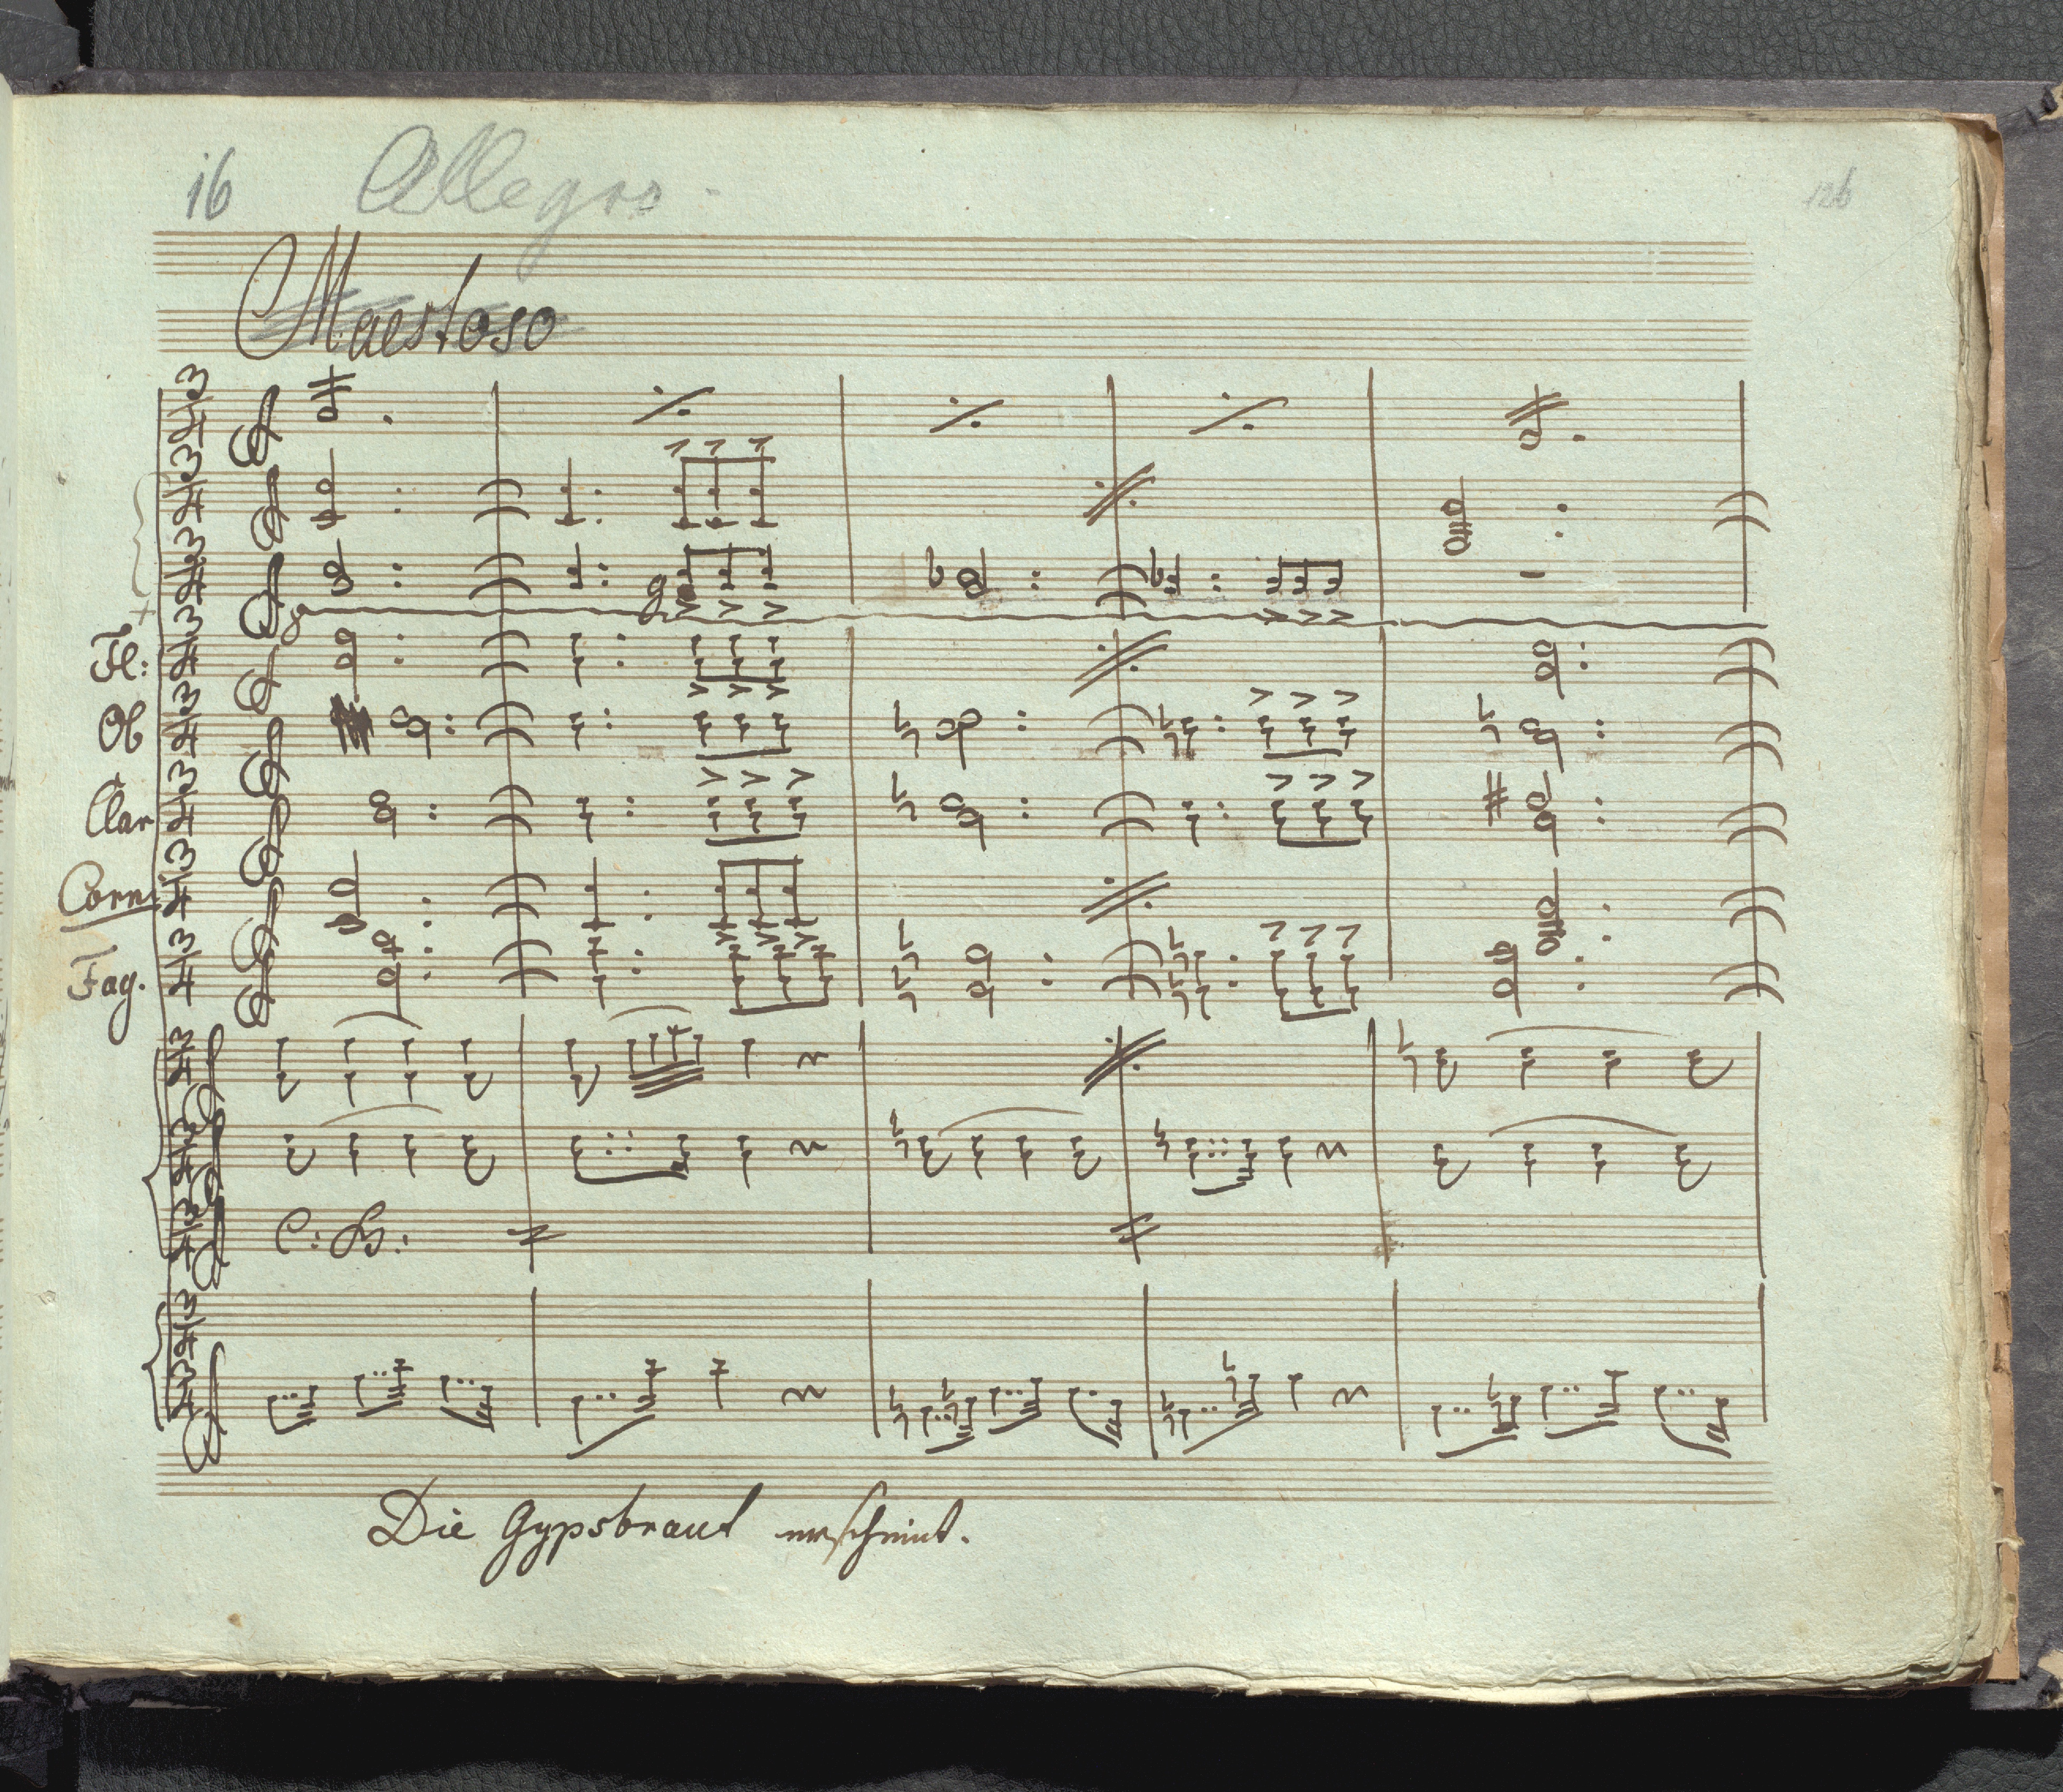 16 Allegro. 126
Maestoso
Fl:
Ob
Clar
Corni
Fag.
C: B:
Die Gypsbraut erscheint.